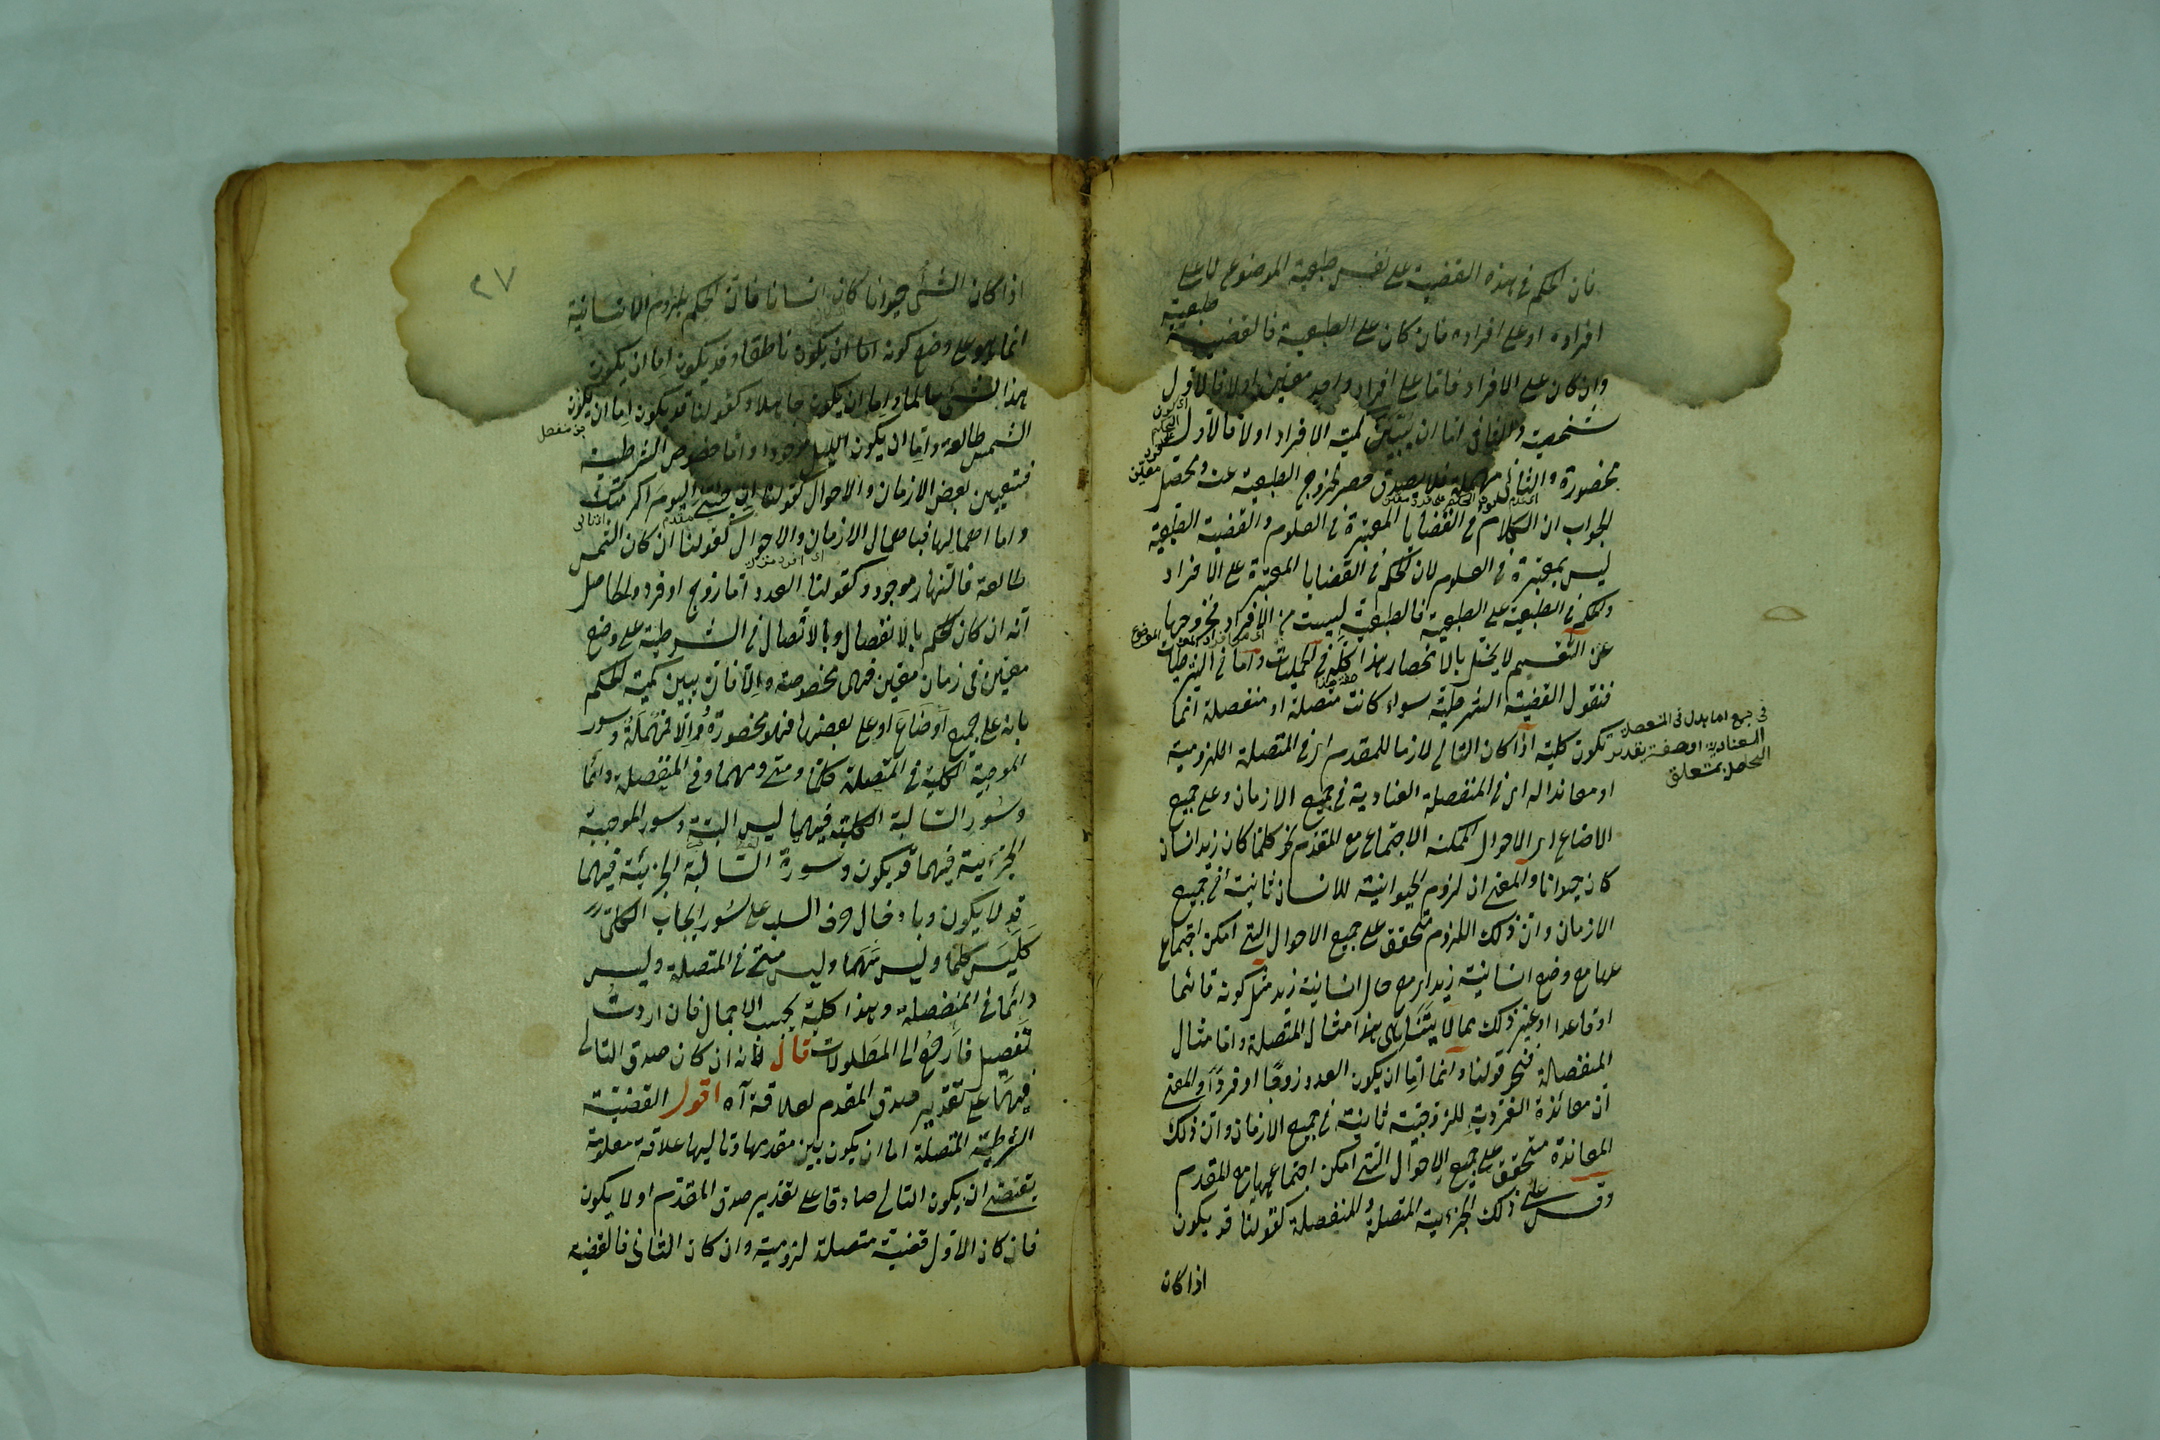 فان الحكم فى هذه القضية على نفس طبيعة الموضوع لا على
طبيعية
افراده او على افراده فان كان على الطبيعة فالقضية
وان كان على الافراد فاما على افراد واحد معين اولا فالاول
شخصية والثانى اما ان يتبين كمية الافراد اولا فالاول
محصورة والثانى مهملة فلا يصدق حصر لخروج الطبيعية عنه ومحصل
الجواب ان الكلام فى القضايا المعتبرة فى العلوم والقضية الطبيعية
ليس بمعتبرة فى العلوم لان الحكم فى القضايا المعتبرة على الافراد
والحكم فى الطبيعية على الطبيعية فالطبيعية ليست من الافراد فخروجها
عن التقسيم لا يخل بالانحصار هذا كله فى الحمليات واما فى الشرطيات
فنقول القضية الشرطية سواء كانت متصلة او منفصلة انما
تكون كلية اذا كان التالى لازما للمقدم اى فى المتصلة اللزومية
او معاندا له اى فى المنفصلة العنادية فى جميع الازمان وعلى جميع
الاضاع اى الاحوال الممكنه الاجتماع مع المقدم نحو كلما كان زيد انسان
كان حيوانا والمعنى ان لزوم الحيوانية للانسان ثابتة فى جميع
الازمان وان ذلك اللزوم متحقق على جميع الاحوال التى امكن اجتماع
عها مع وضع انسانية زيد اى مع حال انسانية زيد مثل كونه قائما
او قاعدا او غير ذلك مما لا يتناهى هذا مثال المتصلة واما مثال
المنفصلة فنحو قولنا دائما اما ان يكون العدد زوجا او فردا والمعنى
ان معاندة الفردية للزوجية ثابتة فى جميع الازمان وان ذلك
المعاندة متحقق على جميع الاحوال التى امكن اجتماعها مع المقدم
وقس على ذلك الجزئية المتصلة والمنفصلة كقولنا قد يكون
اذا كان
فى جميع اما بدل فى المنفصلة
العنادية او صفة بتقدير
الحاصل متعلق
٢٧
اذا كان الشئ حيوانا كان انسانا فان الحكم بلزوم الانسانية
انما هو على وضع كونه اما ان يكون ناطقا وقد يكون اما ان يكون
هذا الشئ عالما واما ان يكون جاهلا وكقولنا قد يكون اما ان يكون
الشمس طالعة واما ان يكون الليل موجودا واما خصوص الشرطية
فبتعيين بعض الازمان والاحوال كقولنا ان جئتنى اليوم اكرمتك
واما اهمالها فباهمال الازمان والاحوال كقولنا ان كان الشمس
طالعة فالنهار موجود وكقولنا العدد اما زوج او فرد والحاصل
انه ان كان الحكم بالانفصال وبالاتصال فى الشرطية على وضع
معين فى زمان معين فهى مخصوصة والا فان بيين كمية الحكم
بانه على جميع اوضاع او على بعضها فهى محصورة والا فمهملة وسور
الموجبة الكلية فى المتصلة كلما ومتى ومهما وفى المنفصلة دائما
وسور السالبة الكلية فيهما ليس البتة وسور الموجبة
الجزئية فيهما قد يكون وسورة السالبة الجزئية فيهما
قد لا يكون وبادخال حرف السلب على سور ايجاب الكلى
كليس كلما وليس مهما وليس متى فى المتصلة وليس
دائما فى المنفصلة وهذا كلية بحسب الاجمال فان اردت
تفصيل فارجع الى المطولات قال لانه ان كان صدق التالى
فيهما على تقدير صدق المقدم لعلاقة آه اقول القضية
الشرطية المتصلة اما ان يكون بين مقدمها وتاليها علاقة معلومة
يقتضى ان يكون التالى صادقا على تقدير صدق المقدم او لا يكون
فان كان الاول قضية متصلة لزومية وان كان الثانى فالقضية